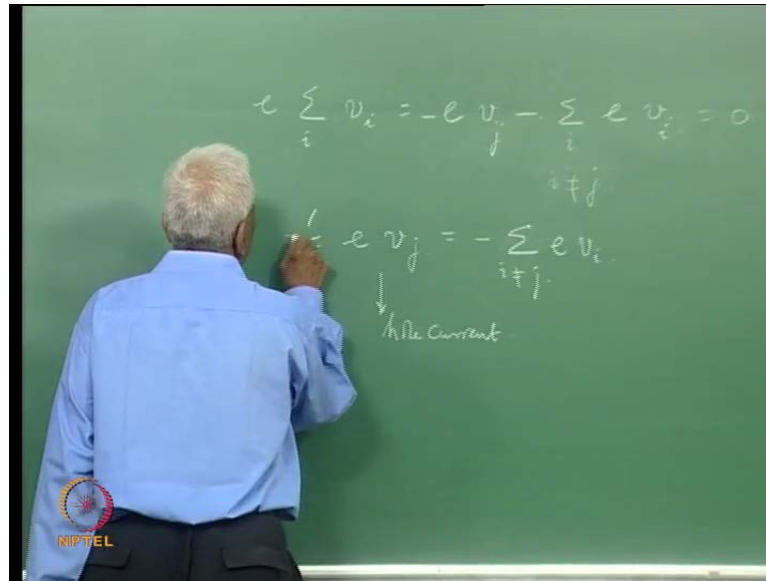 e Σ_i v_i = - e v_j - Σ_{i i≠j} e v_i = 0
e v_j = - Σ_{i≠j} e v_i
hole current
NPTEL